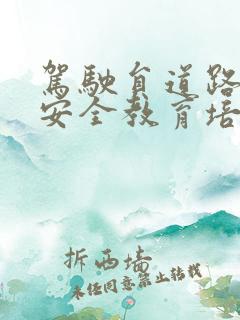 駕駛員道路
安全教育培
拆西墙
未经同意禁止转载